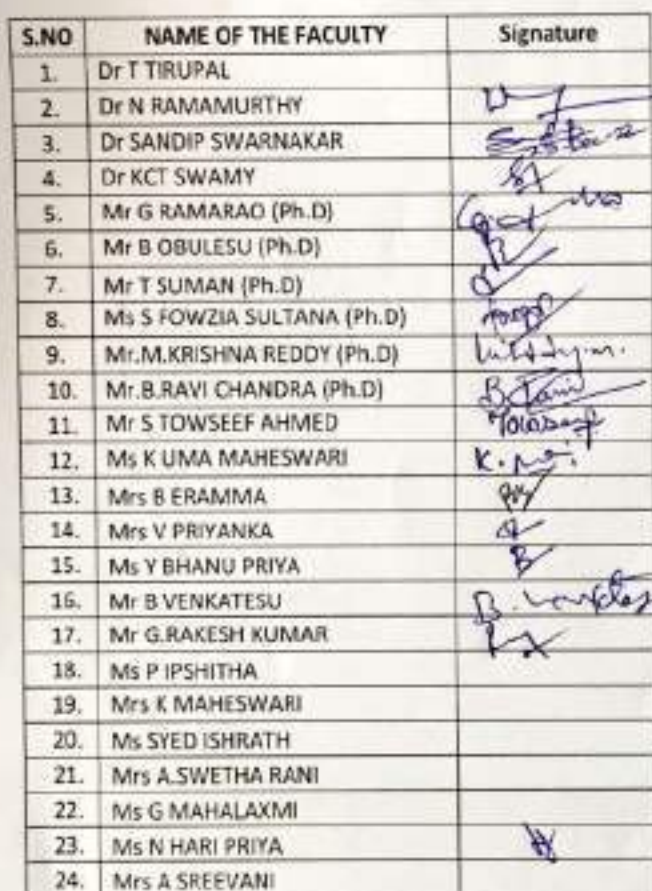 S.NO NAME OF THE FACULTY Signature
1. Dr T TIRUPAL
2. Dr N RAMAMURTHY
3. Dr SANDIP SWARNAKAR
4. Dr KCT SWAMY
5. Mr G RAMARAO (Ph.D)
6. Mr B OBULESU (Ph.D)
7. Mr T SUMAN (Ph.D)
8. Ms S FOWZIA SULTANA (Ph.D)
9. Mr.M.KRISHNA REDDY (Ph.D)
10. Mr.B.RAVI CHANDRA (Ph.D) B. Ravi
11. Mr S TOWSEEF AHMED
12. Ms K UMA MAHESWARI K.
13. Mrs B ERAMMA
14. Mrs V PRIYANKA
15. Ms Y BHANU PRIYA B
16. Mr B VENKATESU B.
17. Mr G.RAKESH KUMAR
18. Ms P IPSHITHA
19. Mrs K MAHESWARI
20. Ms SYED ISHRATH
21. Mrs A.SWETHA RANI
22. Ms G MAHALAXMI
23. Ms N HARI PRIYA
24. Mrs A SREEVANI